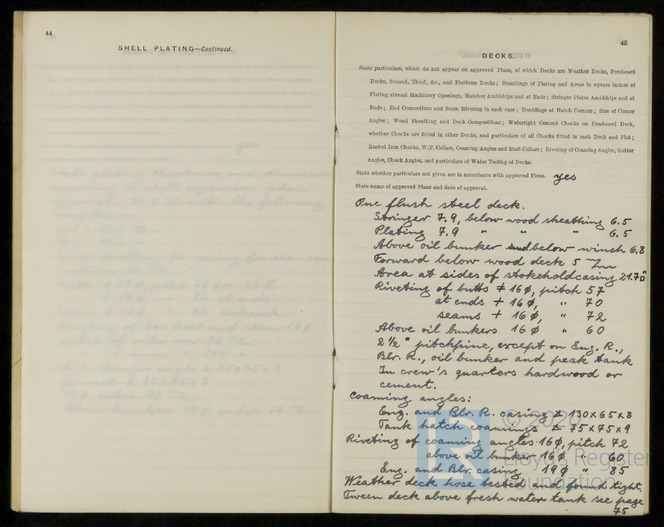 44
SHELL PLATING—Continued.
45
DECKS.
State particulars, which do not appear on approved Plans, of which Decks are Weather Decks, Freeboard
Decks, Second, Third, &c., and Platform Decks; Scantlings of Plating and Areas in square inches of
Plating abreast Machinery Openings, Hatches Amidships and at Ends; Stringer Plates Amidships and at
Ends; End Connections and Seam Riveting in each case; Doublings at Hatch Corners; Size of Corner
Angles; Wood Sheathing and Deck Compositions; Watertight Cement Chocks on Freeboard Deck,
whether Chocks are fitted in other Decks, and particulars of all Chocks fitted in each Deck and Flat;
Rusted Iron Chocks, W.T. Collars, Coaming Angles and Mast Collars; Riveting of Coaming Angles, Gutter
Angles, Chock Angles, and particulars of Water Testing of Decks.
State whether particulars not given are in accordance with approved Plans. yes
State name of approved Plans and date of approval.
One flush steel deck.
Stringer 7.9, below wood sheathing 6.5
Plating 7.9 " " " 6.5
Above oil bunker and below winch 6.8
Forward below wood deck 5 m/m
Area at sides of stokehold casing 21.7 □"
Riveting of butts ‡ 16 ϕ, pitch 57
at ends + 16 ϕ, " 70
seams + 16 ϕ, " 72
Above oil bunkers 16 ϕ " 60
2½" pitchpine, except on Eng. R.,
Blr. R., oil bunker and peak tank
In crew's quarters hardwood or
cement.
Coaming angles:
Eng. and Blr. R. casing 130 x 65 x 8
Tank hatch coamings 75 x 75 x 9
Riveting of coaming angles 16 ϕ, pitch 72
above oil bunker 16 ϕ " 60
Eng. and Blr. casing 19 ϕ " 85
Weather deck hose tested and found tight.
Tween deck above fresh water tank see page
75
© 2020
Lloyd's Register
Foundation